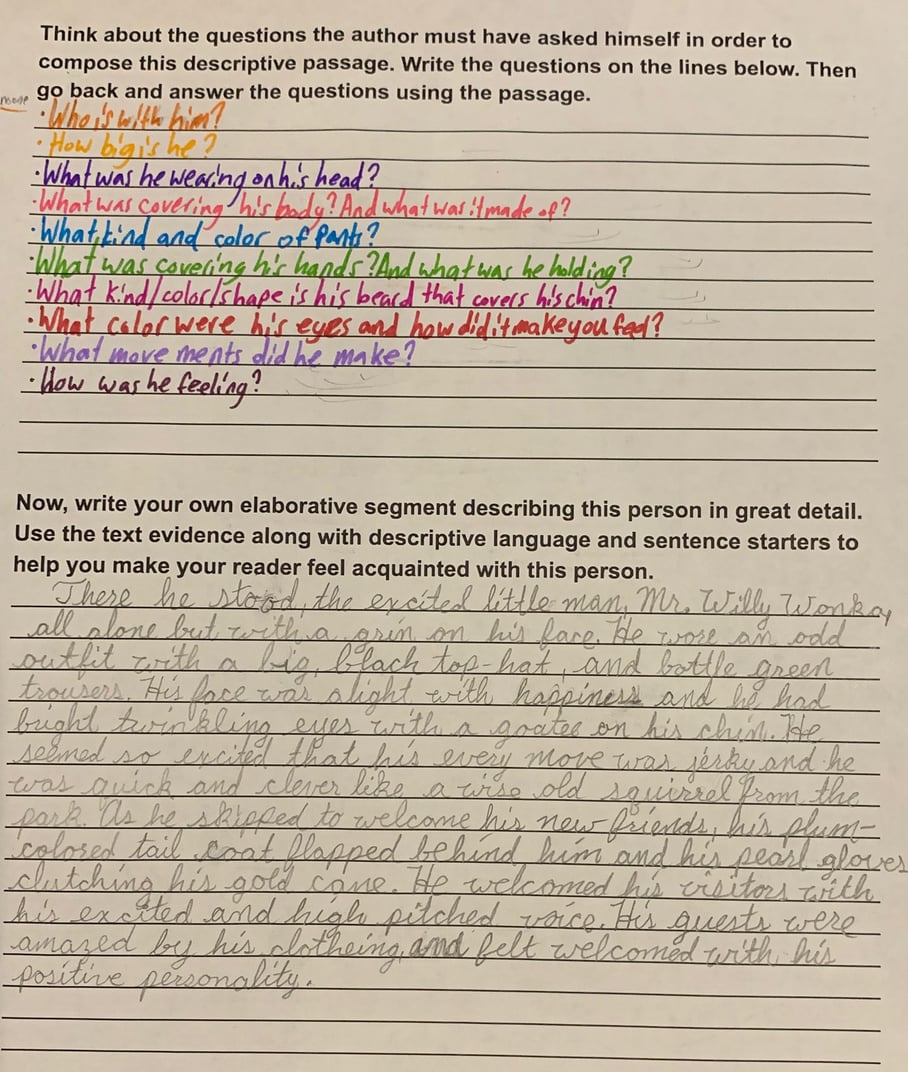 Think about the questions the author must have asked himself in order to
compose this descriptive passage. Write the questions on the lines below. Then
go back and answer the questions using the passage.
none
• Who is with him?
• How big is he?
• What was he wearing on his head?
• What was covering his body? And what was it made of?
• What kind and color of pants?
• What was covering his hands? And what was he holding?
• What kind/color/shape is his beard that covers his chin?
• What color were his eyes and how did it make you feel?
• What movements did he make?
• How was he feeling?
Now, write your own elaborative segment describing this person in great detail.
Use the text evidence along with descriptive language and sentence starters to
help you make your reader feel acquainted with this person.
There he stood, the excited little man, Mr. Willy Wonka,
all alone but with a grin on his face. He wore an odd
outfit with a big, black top-hat, and bottle green
trousers. His face was alight with happiness and he had
bright twinkling eyes with a goatee on his chin. He
seemed so excited that his every move was jerky and he
was quick and clever like a wise old squirrel from the
park. As he skipped to welcome his new friends, his plum-
colored tail coat flapped behind him and his pearl gloves
clutching his gold cane. He welcomed his visitors with
his excited and high pitched voice. His guests were
amazed by his clotheing, and felt welcomed with his
positive personality.